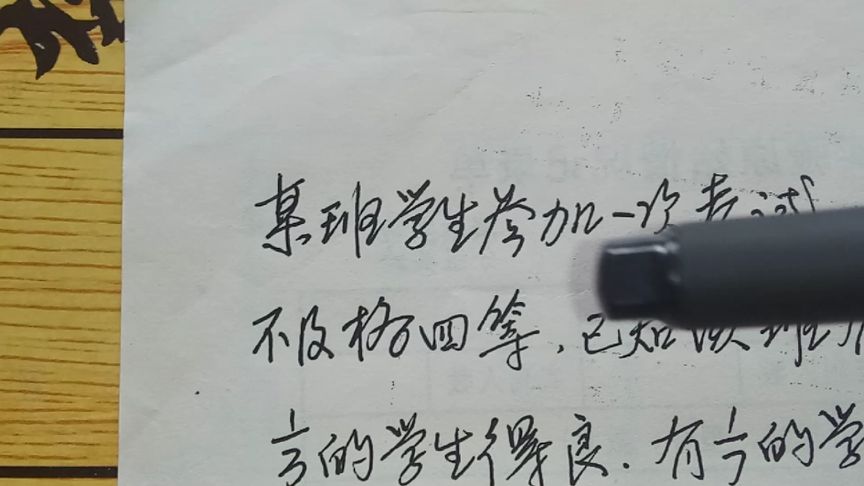 某班学生参加一次考试
不及格四等，已知该班
1/3的学生得良．有1/7的学